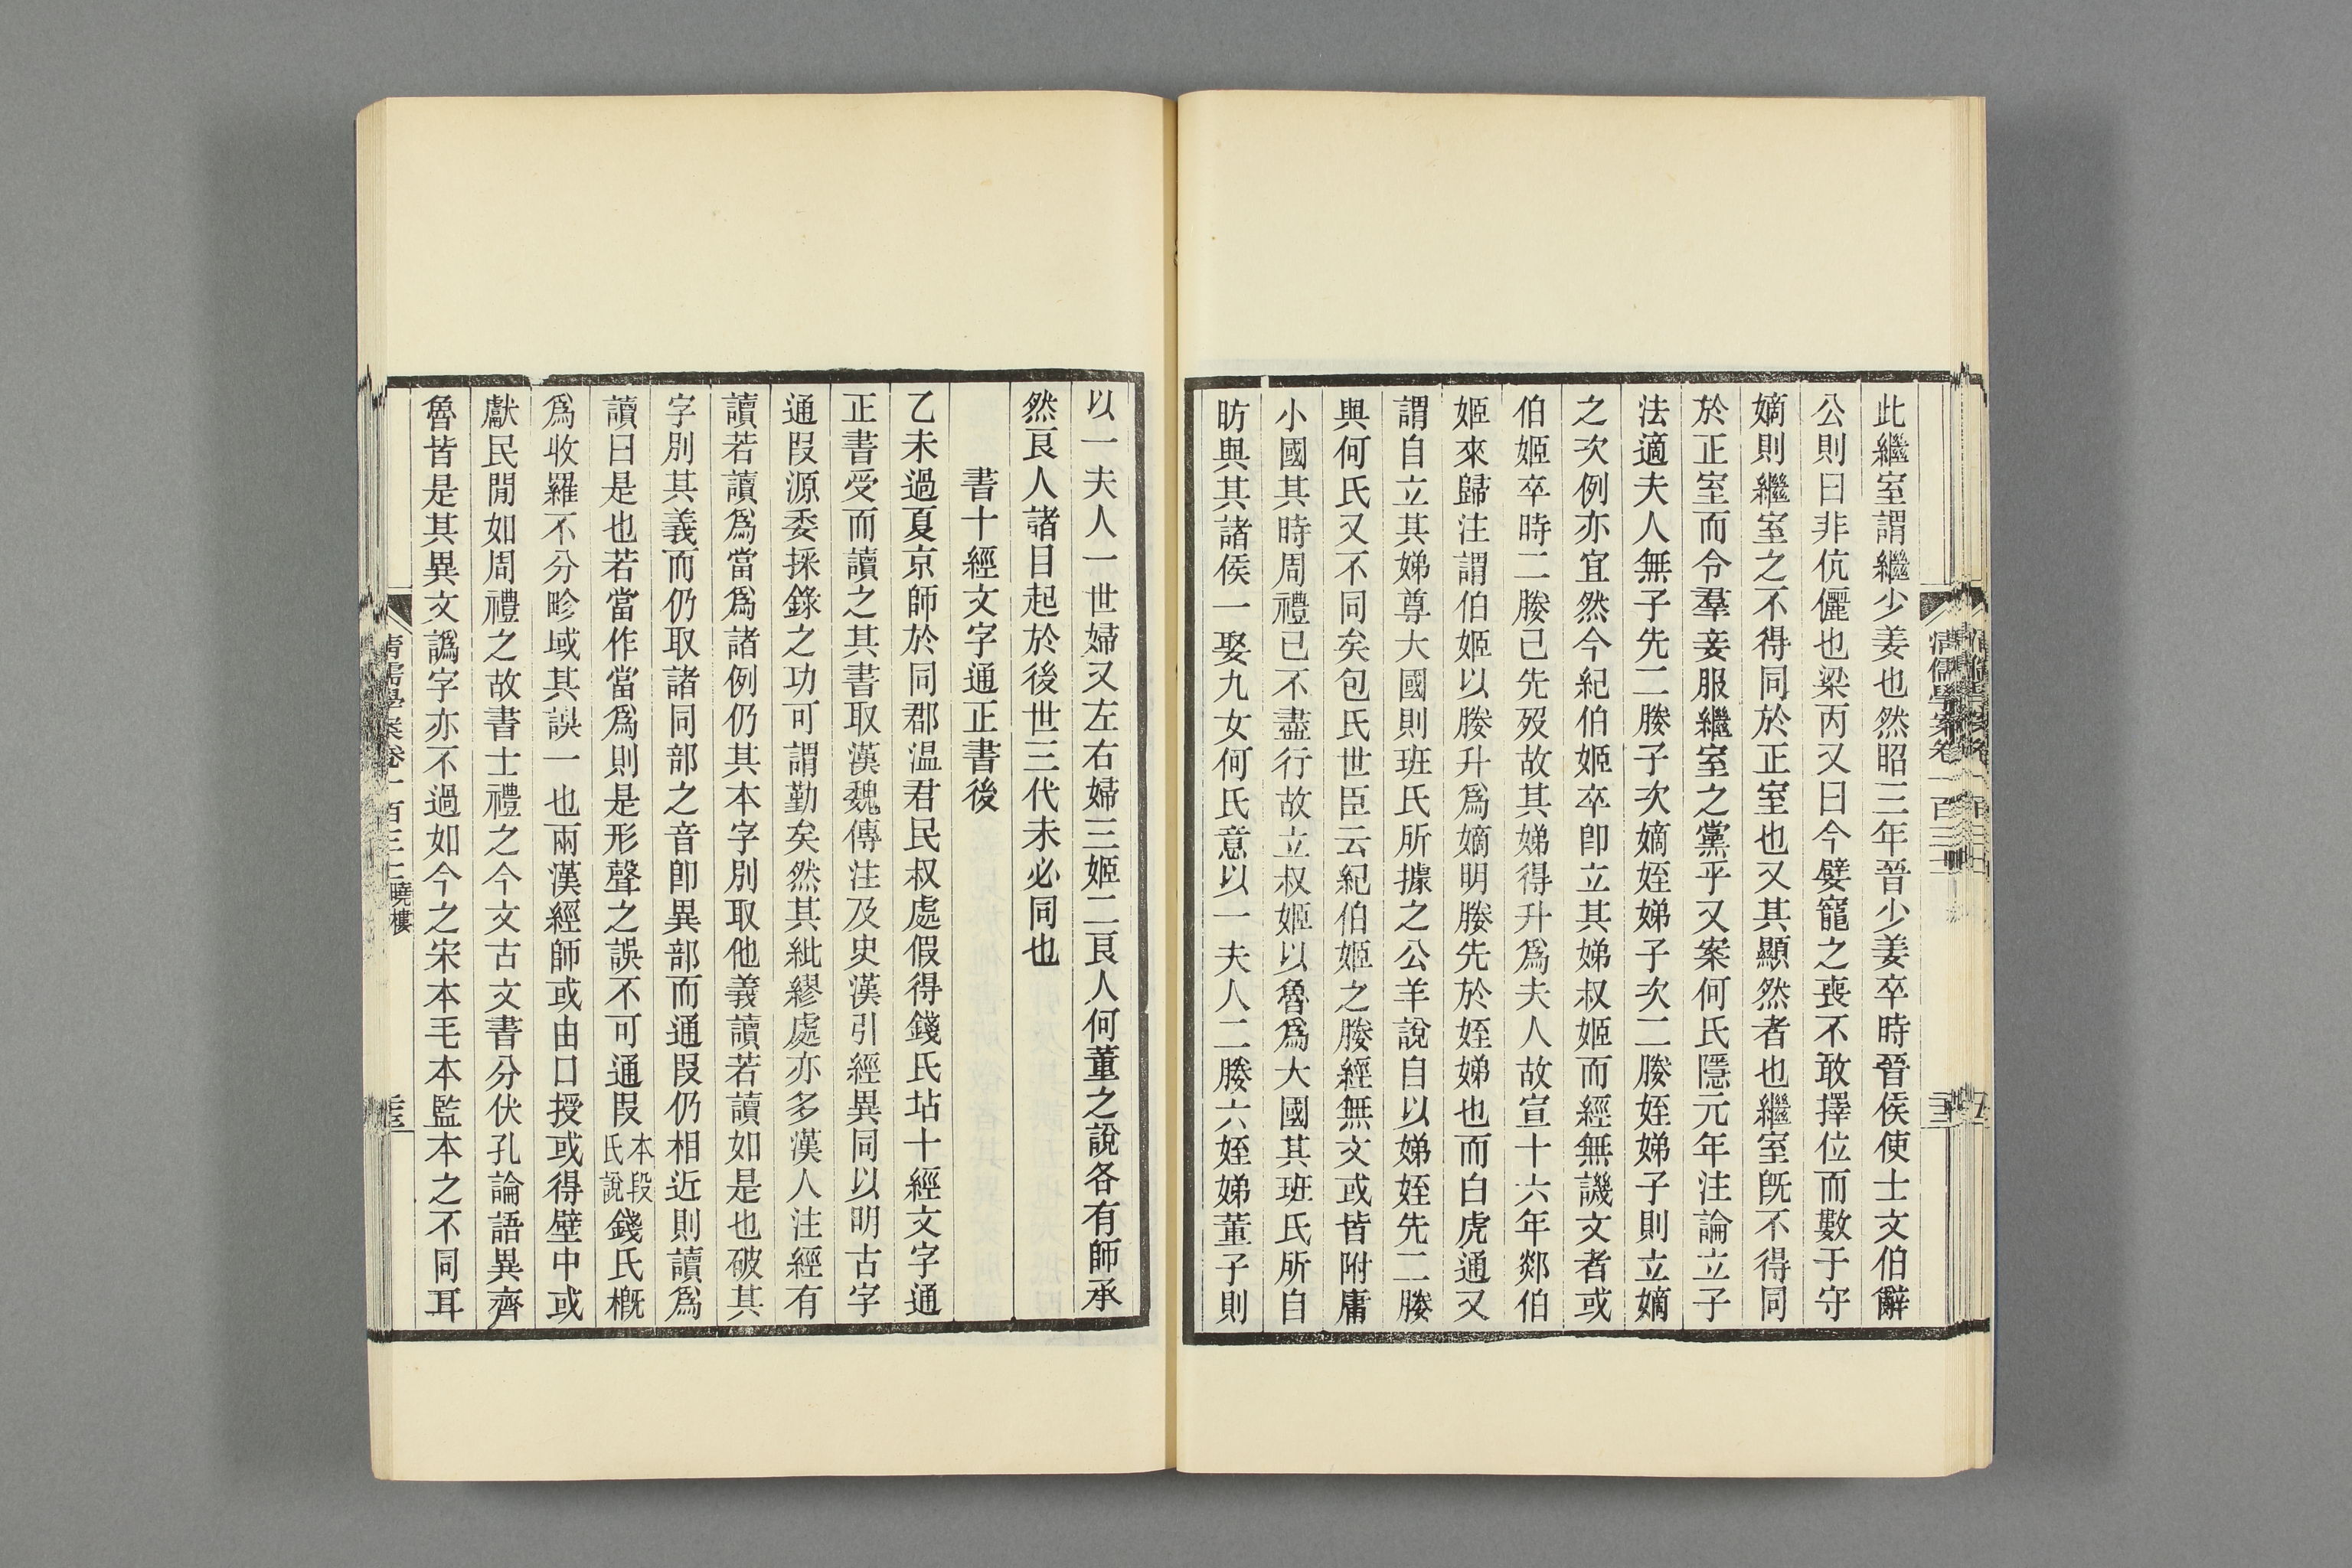 此繼室謂繼少姜也然昭三年晉少姜卒時晉侯使士文伯辭
公則曰非伉儷也梁丙又曰今嬖寵之喪不敢擇位而數于守
嫡則繼室之不得同於正室也又其顯然者也繼室旣不得同
於正室而令羣妾服繼室之黨乎又案何氏隱元年注論立子
法適夫人無子先二媵子次嫡姪娣子次二媵姪娣子則立嫡
之次例亦宜然今紀伯姬卒卽立其娣叔姬而經無譏文者或
伯姬卒時二媵已先歿故其娣得升爲夫人故宣十六年郯伯
姬來歸注謂伯姬以媵升爲嫡明媵先於姪娣也而白虎通又
謂自立其娣尊大國則班氏所據之公羊說自以娣姪先二媵
與何氏又不同矣包氏世臣云紀伯姬之媵經無文或皆附庸
小國其時周禮已不盡行故立叔姬以魯爲大國其班氏所自
昉與其諸侯一娶九女何氏意以一夫人二媵六姪娣董子則
清儒學案卷一百三十二
以一夫人一世婦又左右婦三姬二良人何董之說各有師承
然良人諸目起於後世三代未必同也
書十經文字通正書後
乙未過夏京師於同郡溫君民叔處假得錢氏坫十經文字通
正書受而讀之其書取漢魏傳注及史漢引經異同以明古字
通叚源委採錄之功可謂勤矣然其紕繆處亦多漢人注經有
讀若讀爲當爲諸例仍其本字別取他義讀若讀如是也破其
字別其義而仍取諸同部之音卽異部而通叚仍相近則讀爲
讀曰是也若當作當爲則是形聲之誤不可通叚本段氏說錢氏槪
爲收羅不分畛域其誤一也兩漢經師或由口授或得壁中或
獻民閒如周禮之故書士禮之今文古文書分伏孔論語異齊
魯皆是其異文譌字亦不過如今之宋本毛本監本之不同耳
清儒學案卷一百三十二曉樓